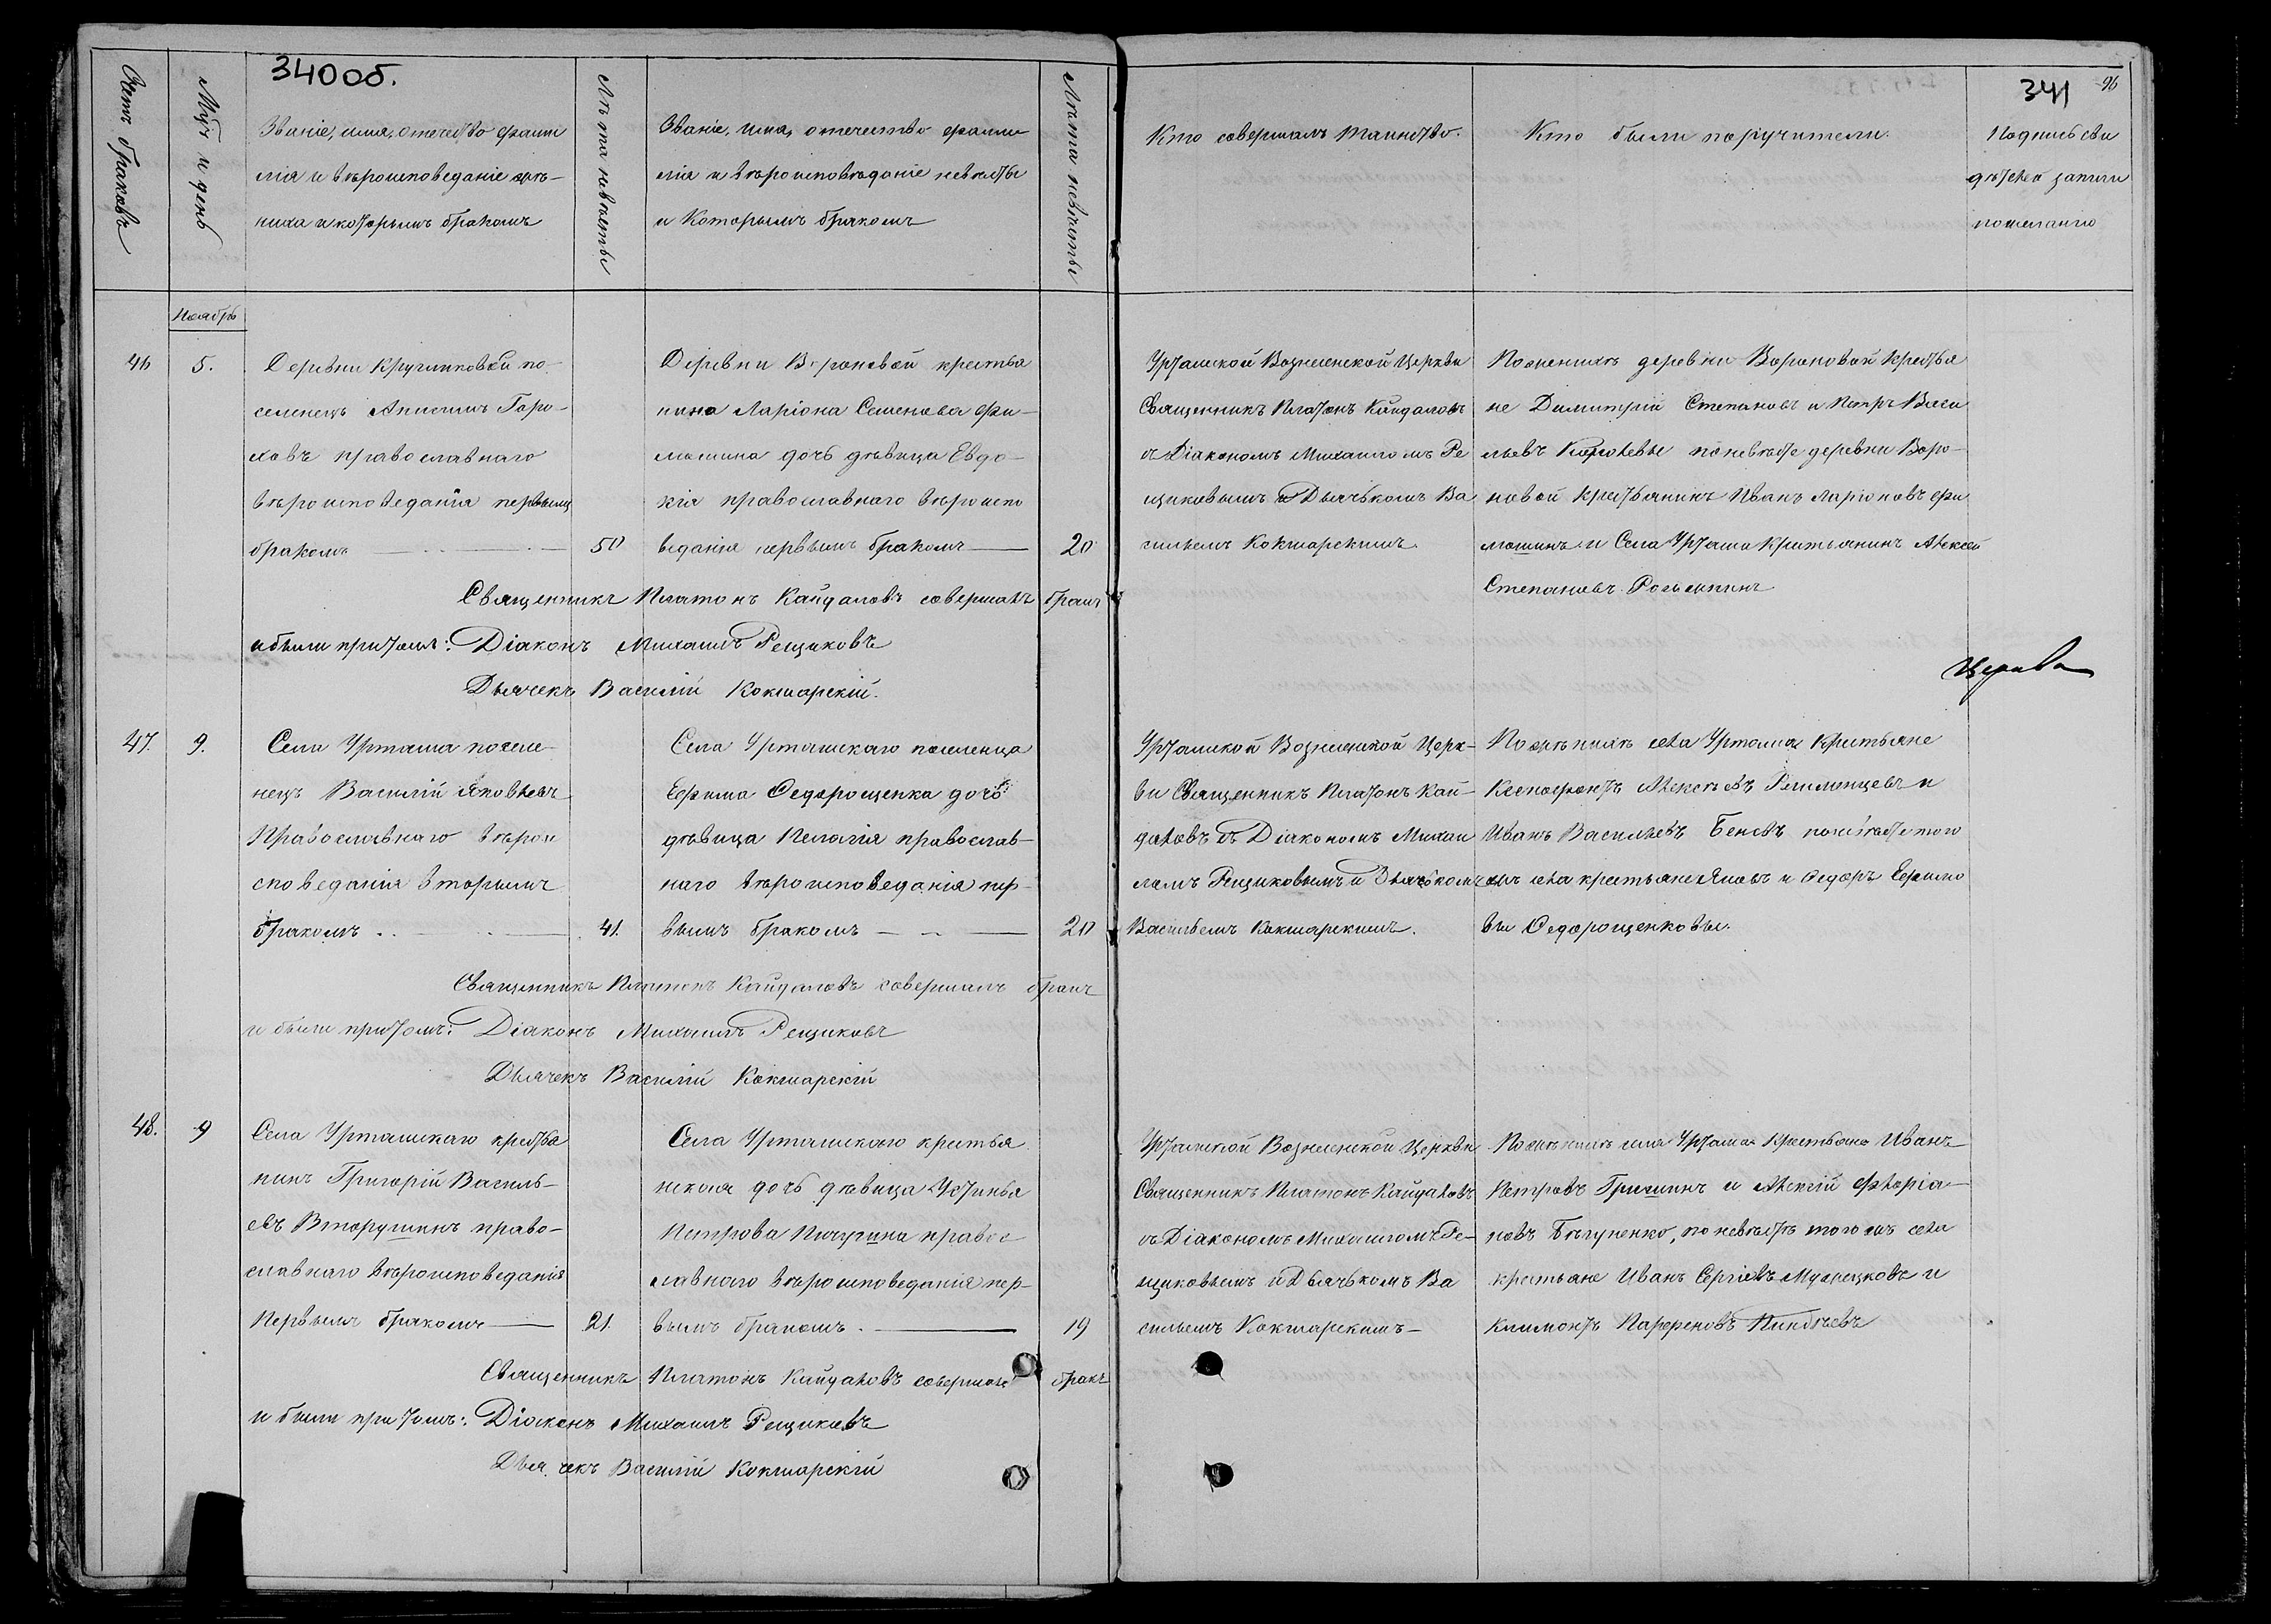 340 об.
341
96
Счетъ браковъ
Мѣсяцъ и день
Званіе, имя, отечество фами
лія и вѣроисповеданіе же-
ниха и которымъ бракомъ
Лѣта
Званіе, имя, отечество фами
лія и вѣроисповѣданіе невѣсты
и Которымъ бракомъ
Лѣта невѣсты
Кто совершалъ таинство.
Кто были поручители.
Подпись сви
дѣтелей записи
по желанію
Ноябрь
46
5.
Деревни Кручинковой по-
селенецъ Анисимъ Горо-
ховъ православнаго
вѣроисповеданія первымъ
бракомъ
50
Деревни Вороновой крестья
нина Ларіона Семенова Фи-
мошина дочь дѣвица Евдо-
кія православнаго вѣроиспо
веданія первымъ бракомъ
20
Уртамской Вознесенской Церкви
Священникъ Платонъ Кайдаловъ
съ Діакономъ Михаиломъ Ре
щиковымъ и Дьячькомъ Ва
сильемъ Кокшарскимъ.
По женихѣ деревни Вороновой Крестья
не Димитрій Степановъ и Петръ Васи
льевъ Королевы по невѣсте деревни Воро-
новой Крестьянинъ Иванъ Ларіоновъ Фи
мошинъ и Села Уртама Крестьянинъ Алексей
Степановъ
Священникъ Платонъ Кайдаловъ совершалъ бракъ
и были при томъ: Діаконъ Михаилъ Рещиковъ
Дьячекъ Василій Кокшарскій.
47.
9.
Села Уртама поселе-
нецъ Василій Яковлевъ
Православнаго вѣрои
споведанія вторымъ
бракомъ
41.
Села Уртамскаго поселенца
Ефима Федорощенка дочь
дѣвица Пелагія православ-
наго вѣроисповеданія пер-
вымъ бракомъ
20
Уртамской Вознесенской Церк-
ви Священникъ Платонъ Кай-
даловъ съ Діакономъ Михаи
ломъ Рещиковымъ и Дьячькомъ
Васильемъ Кокшарскимъ.
По женихѣ села Уртама Крестьяне
Ксенофонтъ Алексѣевъ и
Иванъ Васильевъ по невѣсте того
жъ села крестьяне Яковъ и Федоръ Ефимо
вы Федорощенковы.
Священникъ Платонъ Кайдаловъ совершалъ бракъ
и были при томъ: Діаконъ Михаилъ Рещиковъ
Дьячекъ Василій Кокшарскій
48.
9
Села Уртамскаго крестья
нинъ Григорій Василь-
евъ Вторушинъ право-
славнаго вѣроисповеданія
Первымъ бракомъ
21.
Села Уртамскаго крестья
нская дочь дѣвица Устинья
Петрова Пичугина правос
лавнаго вѣроисповеданія пер-
вымъ бракомъ.
19
Уртамской Вознесенской Церкви
Священникъ Платонъ Кайдаловъ
съ Діакономъ Михаиломъ Ре-
щиковымъ и Дьячькомъ Ва
сильемъ Кокшарскимъ
По женихѣ села Уртама Крестьяне Иванъ
Петровъ Гришинъ и Алексій Флоріа-
новъ Бѣгуненко, по невѣстѣ того жъ села
крестьяне Иванъ Сергіевъ и
Климонтъ Парфеновъ
Священникъ Платонъ Кайдаловъ совершалъ бракъ
и были при томъ: Діаконъ Михаилъ Рещиковъ
Дьячекъ Василій Кокшарскій